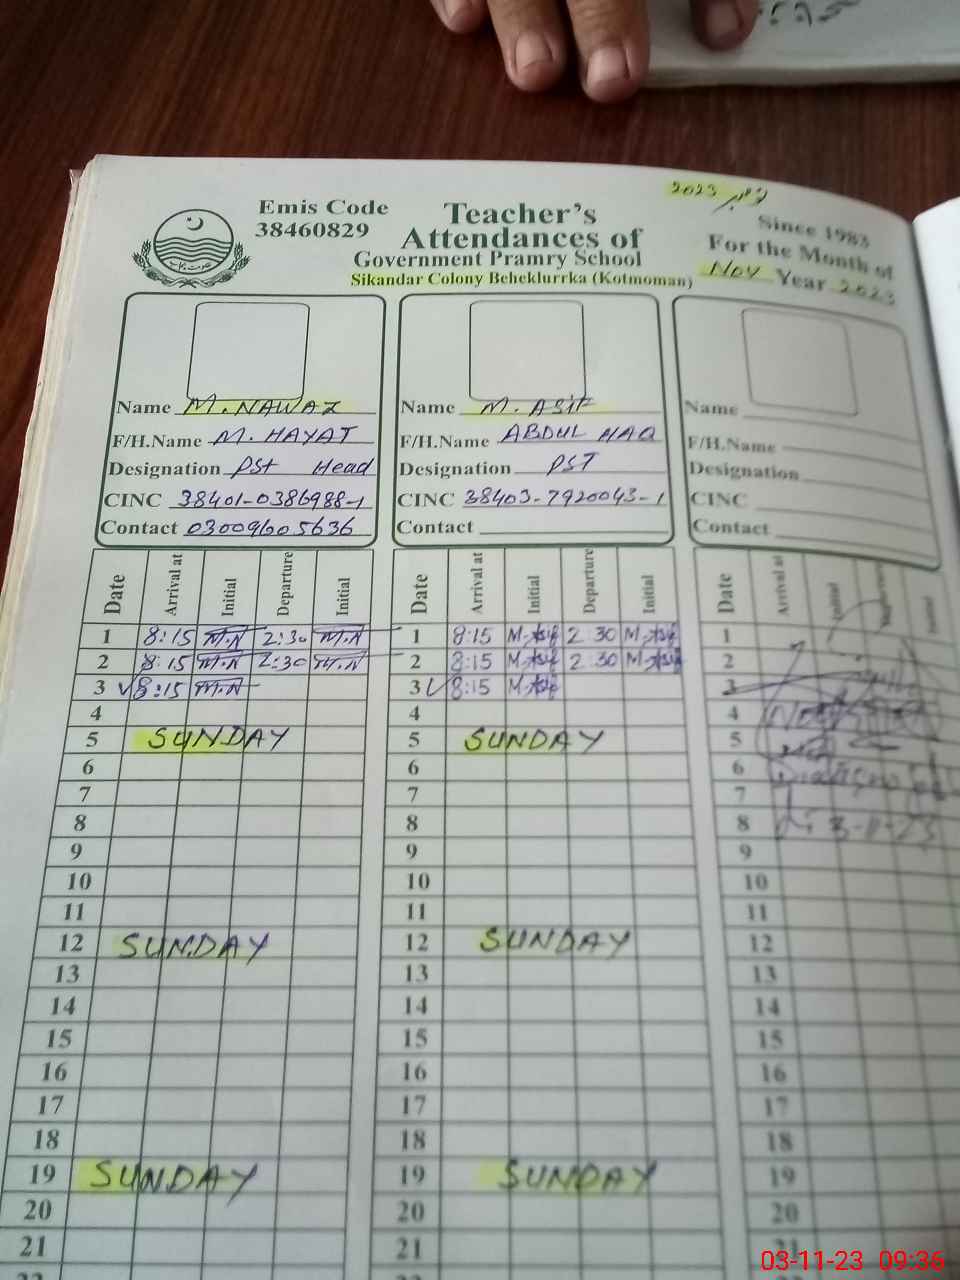 نومبر 2023
Emis Code
38460829
Teacher's
Attendances of
Government Pramry School
Sikandar Colony Beheklurrka (Kotmoman)
Since 1983
For the Month of
Nov Year 2023
Name M. NAWAZ
F/H.Name M. HAYAT
Designation PST Head
CINC 38401-0386988-1
Contact 03009605636
Name M. ASIF
F/H.Name ABDUL HAQ
Designation PST
CINC 38403-7920043-1
Contact
Name
F/H.Name
Designation
CINC
Contact
Date Arrival at Initial Departure Initial
1 8:15 M.N 2:30 M.N
2 8:15 M.N 2:30 M.N
3 8:15 M.N
4
5 SUNDAY
6
7
8
9
10
11
12 SUNDAY
13
14
15
16
17
18
19 SUNDAY
20
21
22
Date Arrival at Initial Departure Initial
1 8:15 M.Asif 2:30 M.Asif
2 8:15 M.Asif 2:30 M.Asif
3 8:15 M.Asif
4
5 SUNDAY
6
7
8
9
10
11
12 SUNDAY
13
14
15
16
17
18
19 SUNDAY
20
21
Date Arrival at Initial Departure Initial
1
2
3
4
5
6
7
8 3-11-23
9
10
11
12
13
14
15
16
17
18
19
20
21
03-11-23 09:36